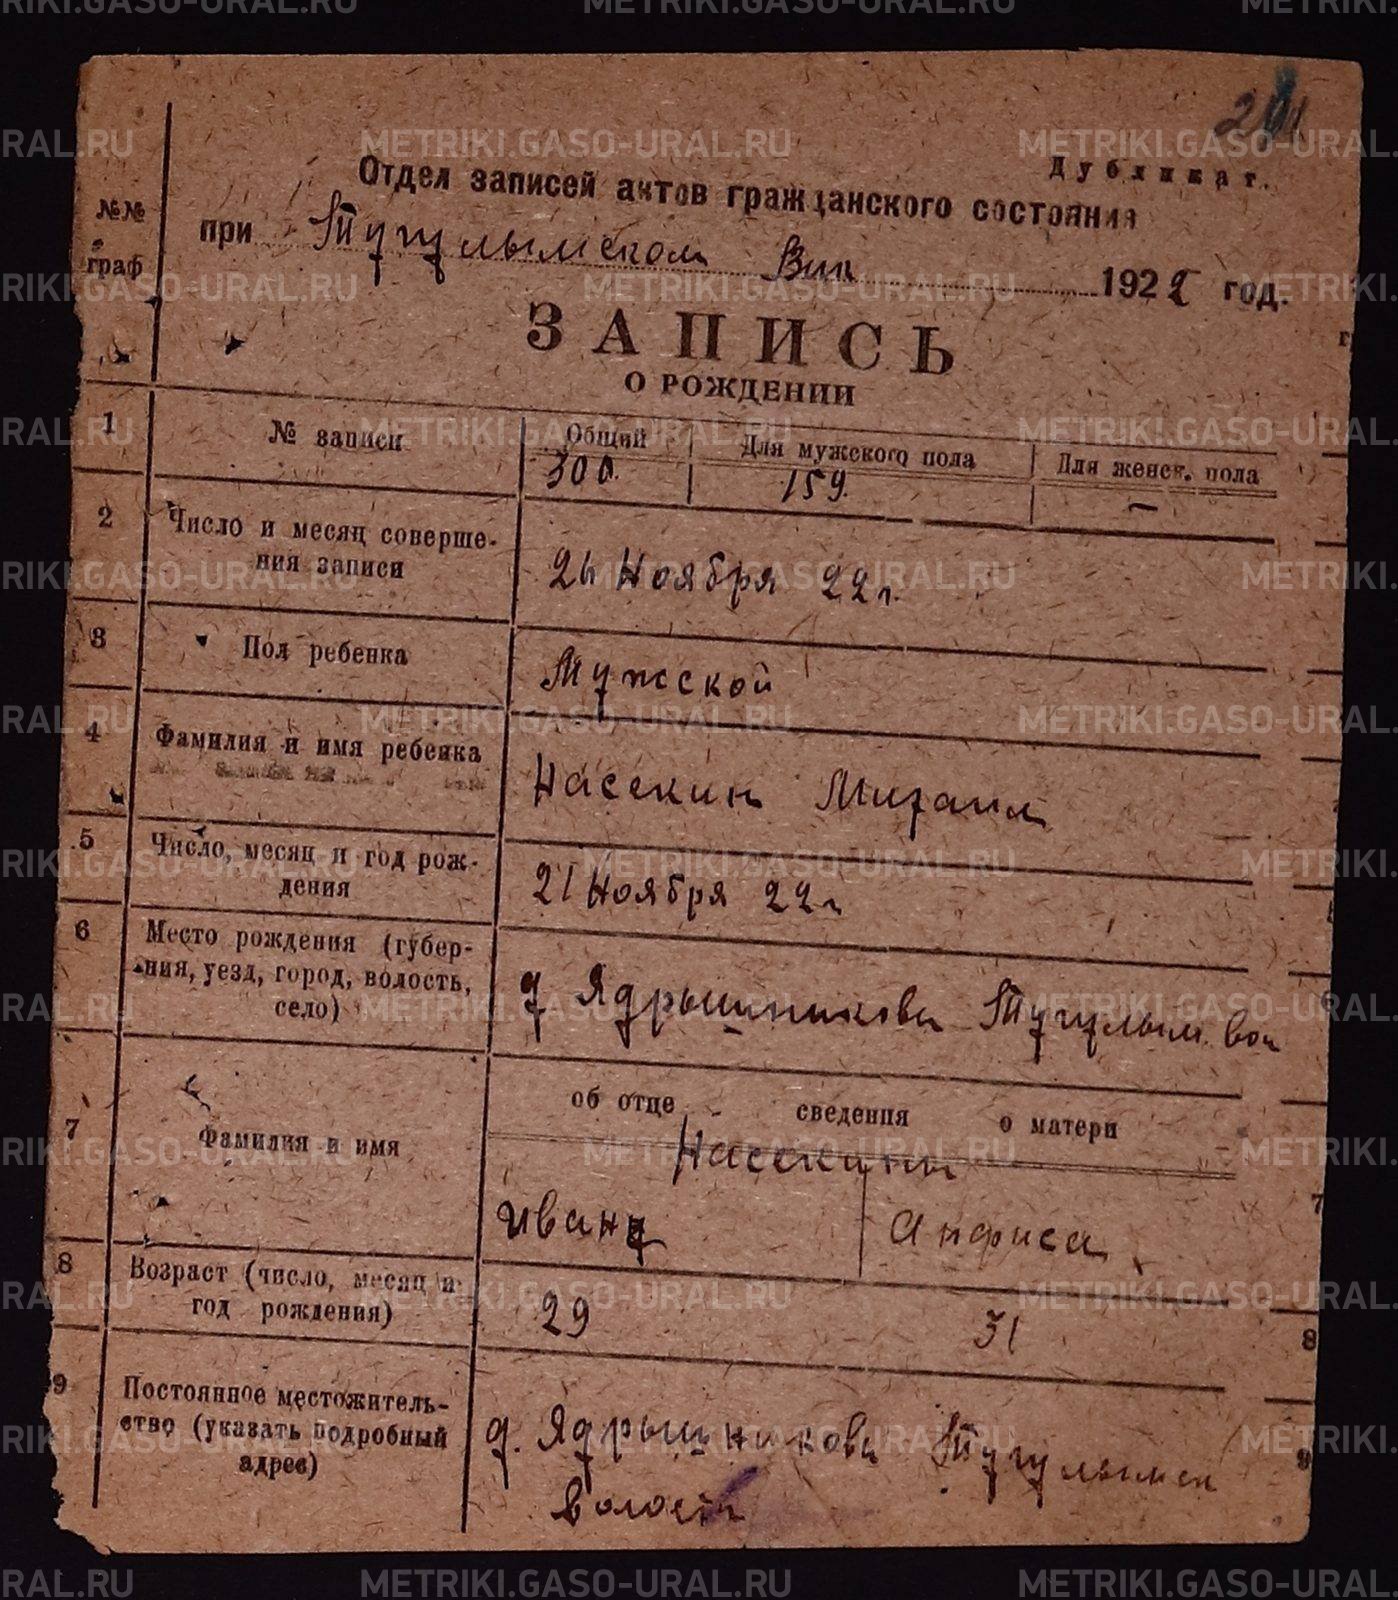 201
Дубликат.
Отдел записей актов гражданского состояния
№№ граф
при Тугулымском Вик 1922 год.
ЗАПИСЬ
О РОЖДЕНИИ
1 № записи Общий Для мужского пола Для женск. пола
300. 159. —
2 Число и месяц соверше-
ния записи
26 Ноября 22 г.
3 Пол ребенка Мужской
4 Фамилия и имя ребенка
Насекин Михаил
5 Число, месяц и год рож-
дения
21 Ноября 22 г
6 Место рождения (губер-
ния, уезд, город, волость,
село)
д Ядрышникова Тугулым. вол
об отце сведения о матери
7 Фамилия и имя
Насекины
Иван Анфиса
8 Возраст (число, месяц и
год рождения)
29 31
8
9 Постоянное местожитель-
ство (указать подробный
адрес)
д. Ядрышникова Тугулымск
волости
9
7
METRIKI.GASO-URAL.RU